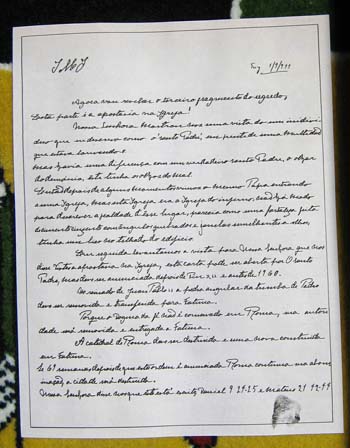 J.M.J
Tuy 1/9/944
Agora vou revelar o terceiro fragmento do segredo;
Esta parte é a apostasia na Igreja!
Nossa Senhora mostrou-nos uma vista do um individ
duo que eu descrevo como o 'santo Padre', em frente de uma multidão
que estava louvando-o.
Mas havia uma diferença com um verdadeiro santo Padre, o olhar
do demónio, este tinha o olhar do mal.
Então depois de alguns momentos vimos o mesmo Papa entrando
a uma Igreja, mas esta Igreja era a Igreja do inferno, não há modo
para descrever a fealdade d'esse lugar, parecia como uma fortaleza feita
de cimento cinzento com ângulos quebrados e janelas semelhantes a olhos,
tinha um bico no telhado do edifício.
Em seguida levantamos a vista para Nossa Senhora que nos
disse Vistes a apostasia na Igreja, esta carta pode ser aberta por O santo
Padre, mas deve ser anunciada depois de Pio XII e antes de 1960.
No reinado de Juan Pablo II a pedra angular da tumba de Pedro
deve ser removida e transferida para Fatima.
Porque o dogma da fé não é conservado em Roma, sua autori
dade será removida e entregada a Fatima.
A catedral de Roma deve ser destruida e uma nova construida
em Fatima.
Se 69 semanas depois de que esta ordem é anunciada Roma continua sua abomi
nação, a cidade será destruida.
Nossa Senhora disse-nos que isto está escrito, Daniel 9 24-25 e Mateus 21 42-44